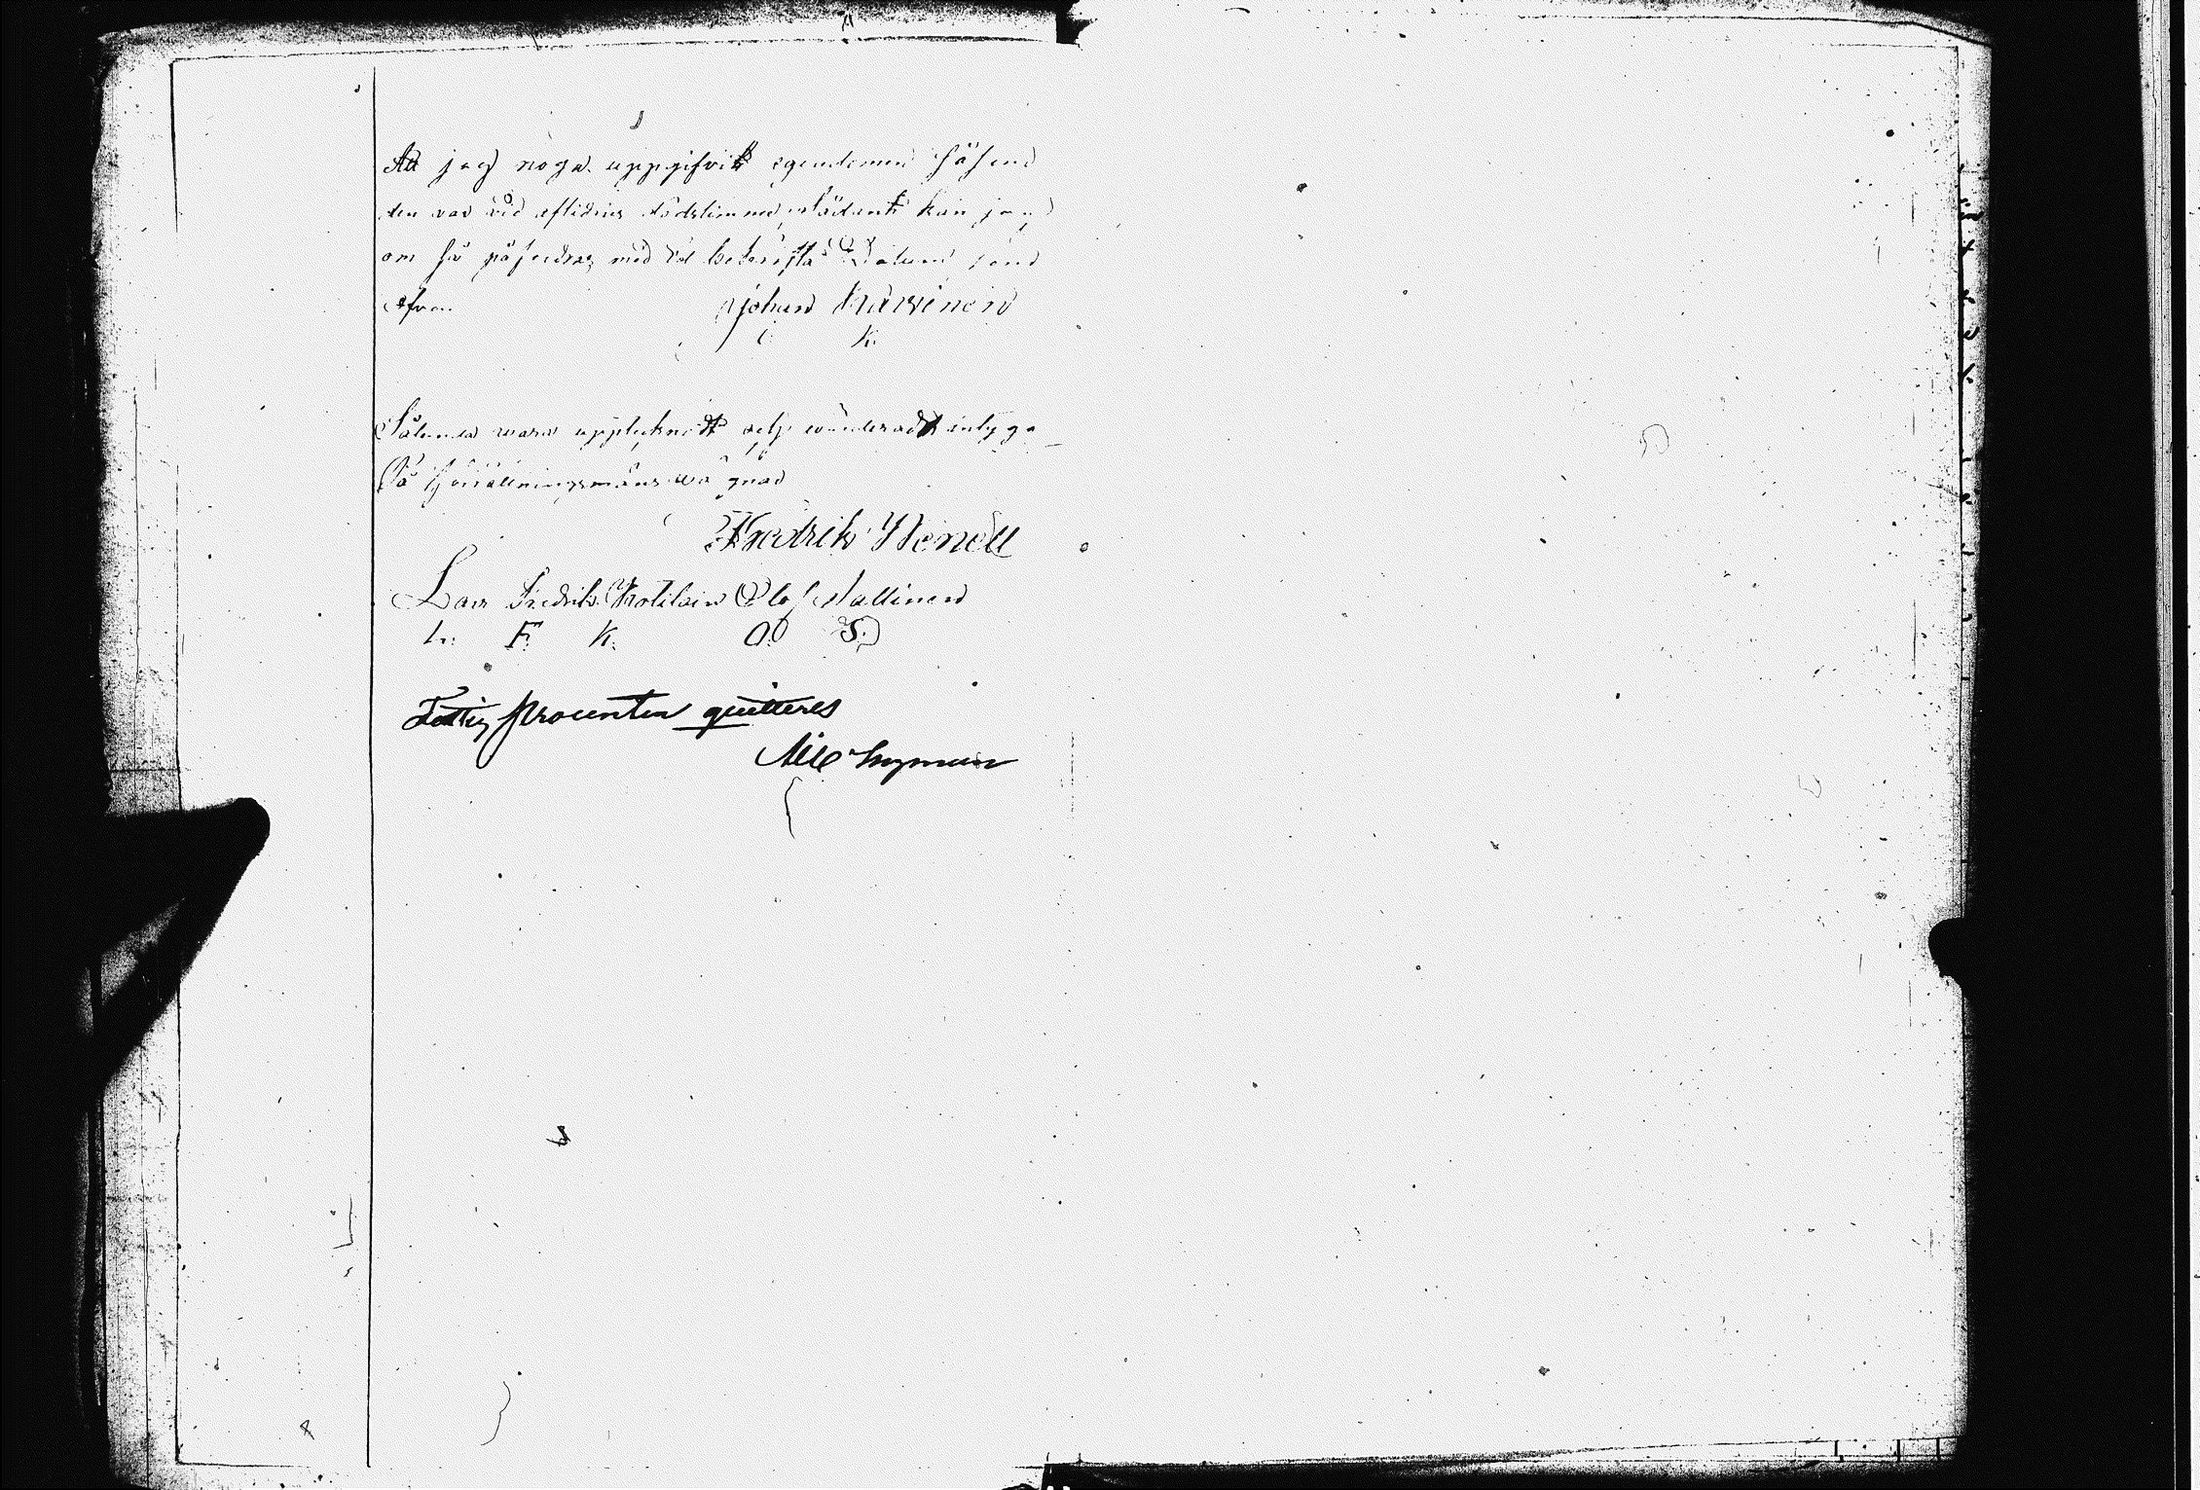 Att jag noga uppgifvit egendomen såsom
den var vid aflidnes dödstimma, sådant kan jag
om så påfordras med Ed bekräfta Datum som
ofvan. Johan Karvinen
K.
Sålunda wara upptecknadt och wärderadt intyga
På Förrättningsmäns wägnar
Fredrik Wenell
Lars Fredrik Kotilain Olof Sallinen
L. F. K. O. S.
Fattig procenten quitteras
Nyman